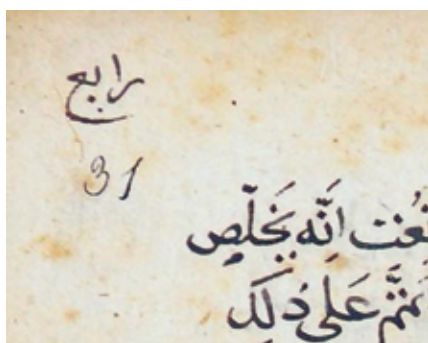 رابع
31
انّه يخلّص
على ذلك